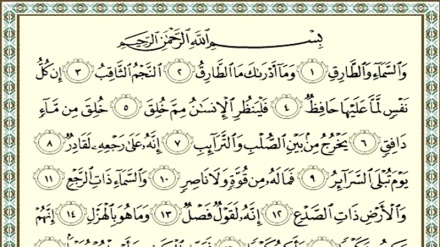 بِسْمِ اللَّهِ الرَّحْمَٰنِ الرَّحِيمِ
وَالسَّمَاءِ وَالطَّارِقِ ١ وَمَا أَدْرَىٰكَ مَا الطَّارِقُ ٢ النَّجْمُ الثَّاقِبُ ٣ إِن كُلُّ
نَفْسٍ لَّمَّا عَلَيْهَا حَافِظٌ ٤ فَلْيَنظُرِ الْإِنسَٰنُ مِمَّ خُلِقَ ٥ خُلِقَ مِن مَّاءٍ
دَافِقٍ ٦ يَخْرُجُ مِن بَيْنِ الصُّلْبِ وَالتَّرَائِبِ ٧ إِنَّهُ عَلَىٰ رَجْعِهِ لَقَادِرٌ ٨
يَوْمَ تُبْلَى السَّرَائِرُ ٩ فَمَا لَهُ مِن قُوَّةٍ وَلَا نَاصِرٍ ١٠ وَالسَّمَاءِ ذَاتِ الرَّجْعِ ١١
وَالْأَرْضِ ذَاتِ الصَّدْعِ ١٢ إِنَّهُ لَقَوْلٌ فَصْلٌ ١٣ وَمَا هُوَ بِالْهَزْلِ ١٤ إِنَّهُمْ